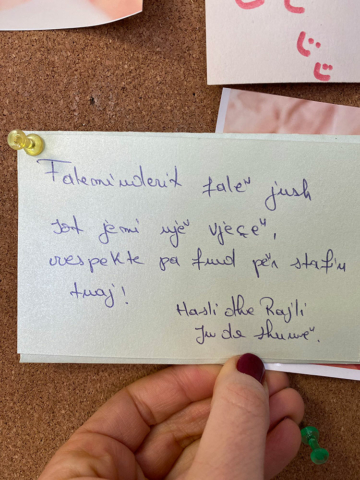 Faleminderit falë jush
sot jemi një vjeçë,
respekte pa fund për stafin
tuaj!
Hasli dhe Rajli
Ju do shumë.